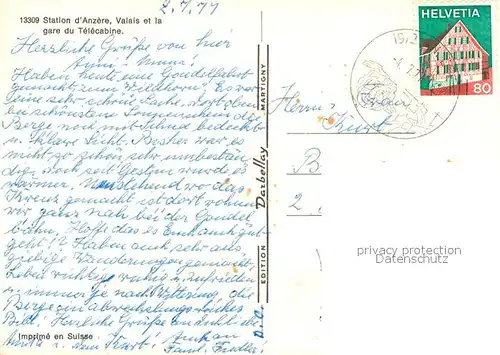 2.7.77
13309 Station d'Anzère, Valais et la
gare du Télécabine.
Herzliche Grüße von hier
Haben heute eine Gondelfahrt
gemacht zum Wildhorn. Es war
eine sehr schöne Sache, dort oben
bei schönstem Sonnenschein die
Berge noch mit Schnee bedeckt
u. klare Sicht. Bisher war es
nicht so schön sehr unbestän-
dig, doch seit Gestern wurde es
wärmer. wo das
Kreuz gemacht ist dort wohnen
wir ganz nah bei der Gondel
bahn. Hoffe das es Euch auch gut
geht!? Haben auch sehr aus
giebige Wanderungen gemacht,
Leben richtig ruhig u. zufrieden
u. immer je nach Witterung die
Berge ein abwechslungsreiches
Bild. Herzliche Grüße an Dich liebe
Anita u. dem Kurt!
Fam.
Imprimé en Suisse
EDITION Darbellay MARTIGNY
HELVETIA
80
1972
Herrn Frau
Kurt
B
2.
privacy protection
Datenschutz